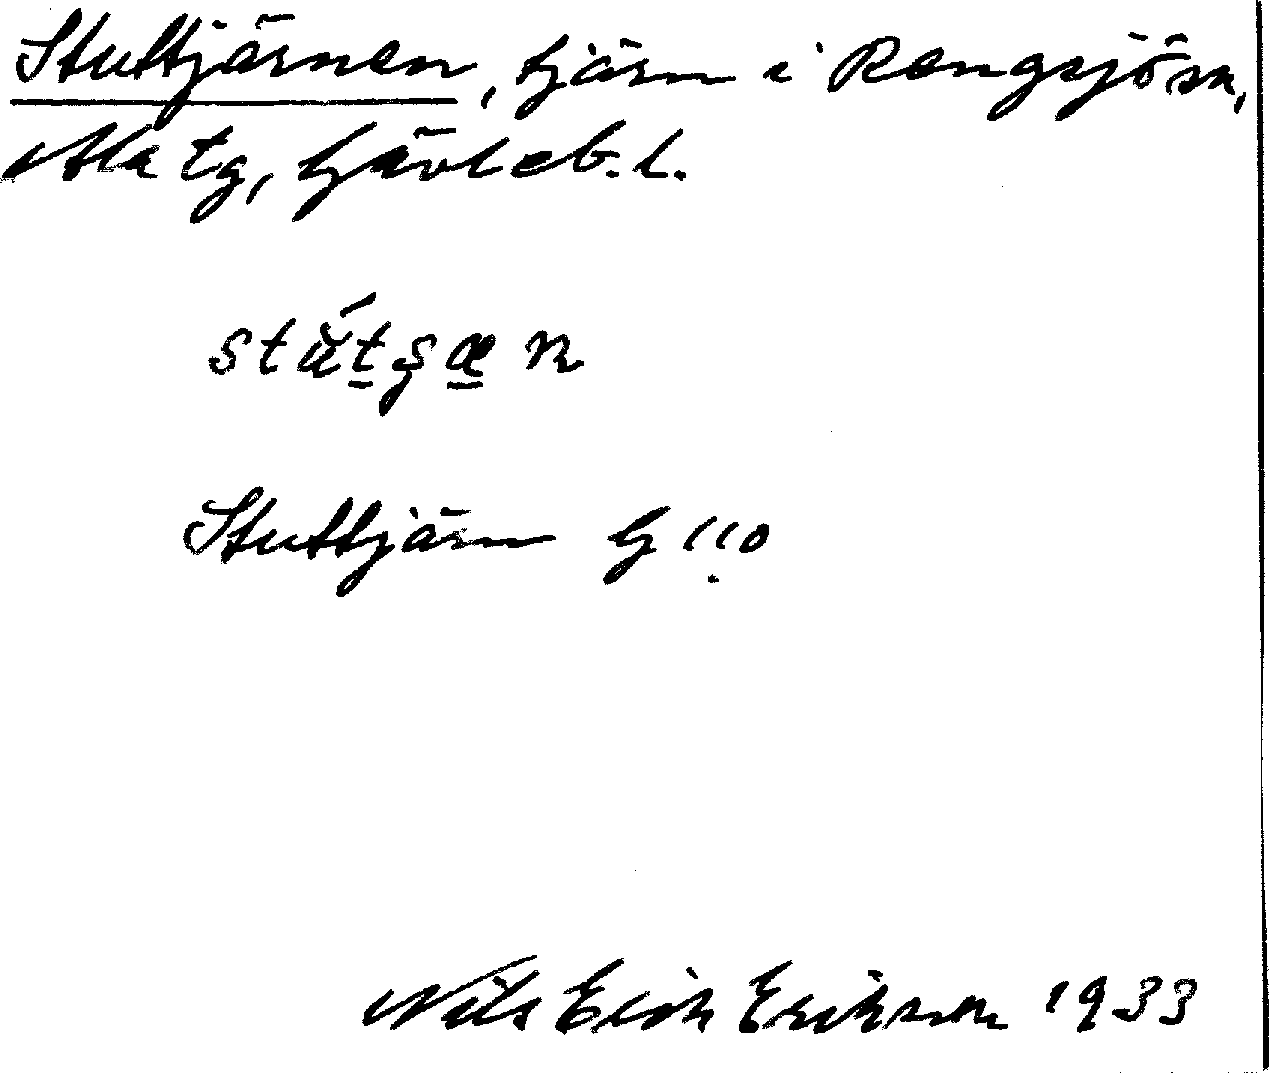 Stuttjärnen, tjärn i Rengsjö sn,
Ala tg, Gävleb. l.
stútşæn
Stuttjärn G 110
Nils Erik Erikson 1933